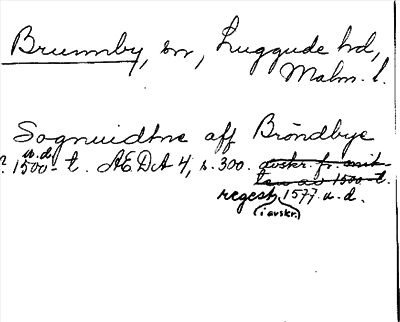 Brunnby, sn, Luggude hd,
Malm. l.
Sognuidhne aff Bröndbye
u.d.
? 1500-t. ÆDA 4, s. 300. avskr. fr. mitten
av 1500-t.
regest 1577 u. d.
(i avskr.)